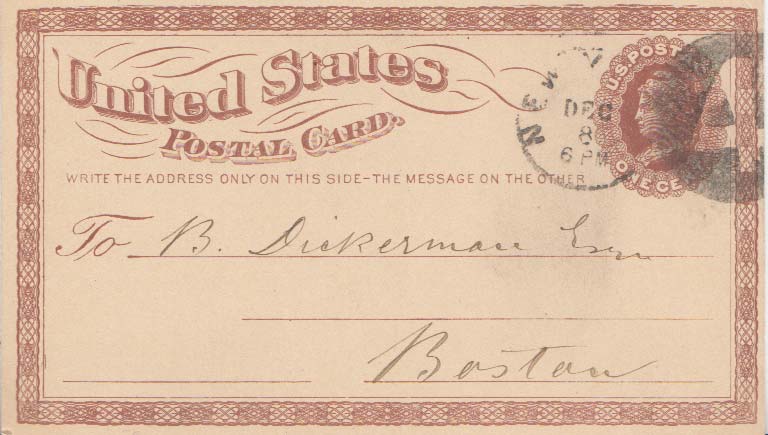 United States
POSTAL CARD.
U.S. POST
ONE CE
NEW
DEC
8
6 PM
WRITE THE ADDRESS ONLY ON THIS SIDE-THE MESSAGE ON THE OTHER
To B. Dickerman Esqr
Boston